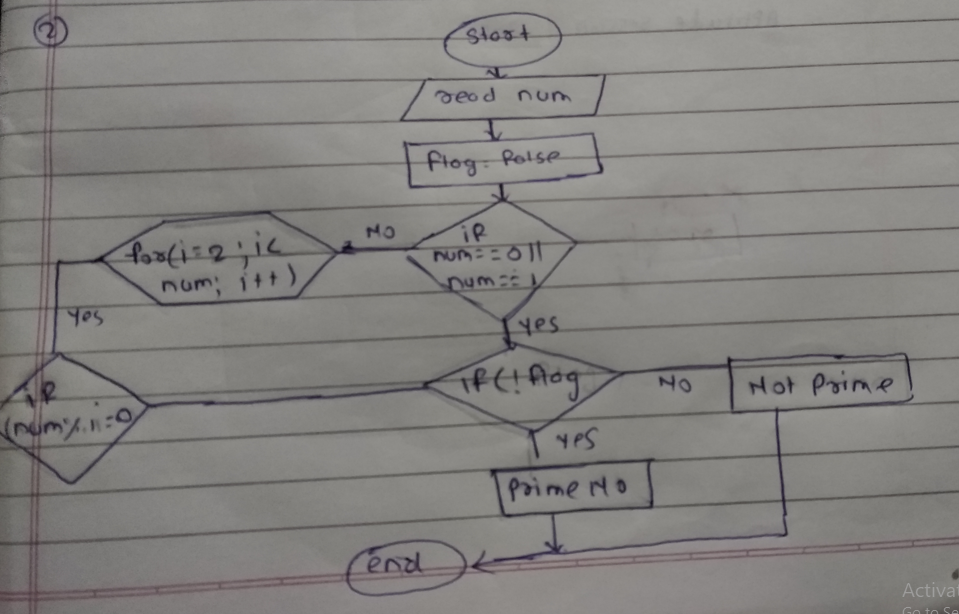 2
Start
read num
flag = false
if
num==0||
num==1
NO
for(i=2; i<
num; i++)
yes
yes
if
(num%i=0
if(!flag
NO
Not Prime
yes
Prime NO
end
Activat
Go to Se